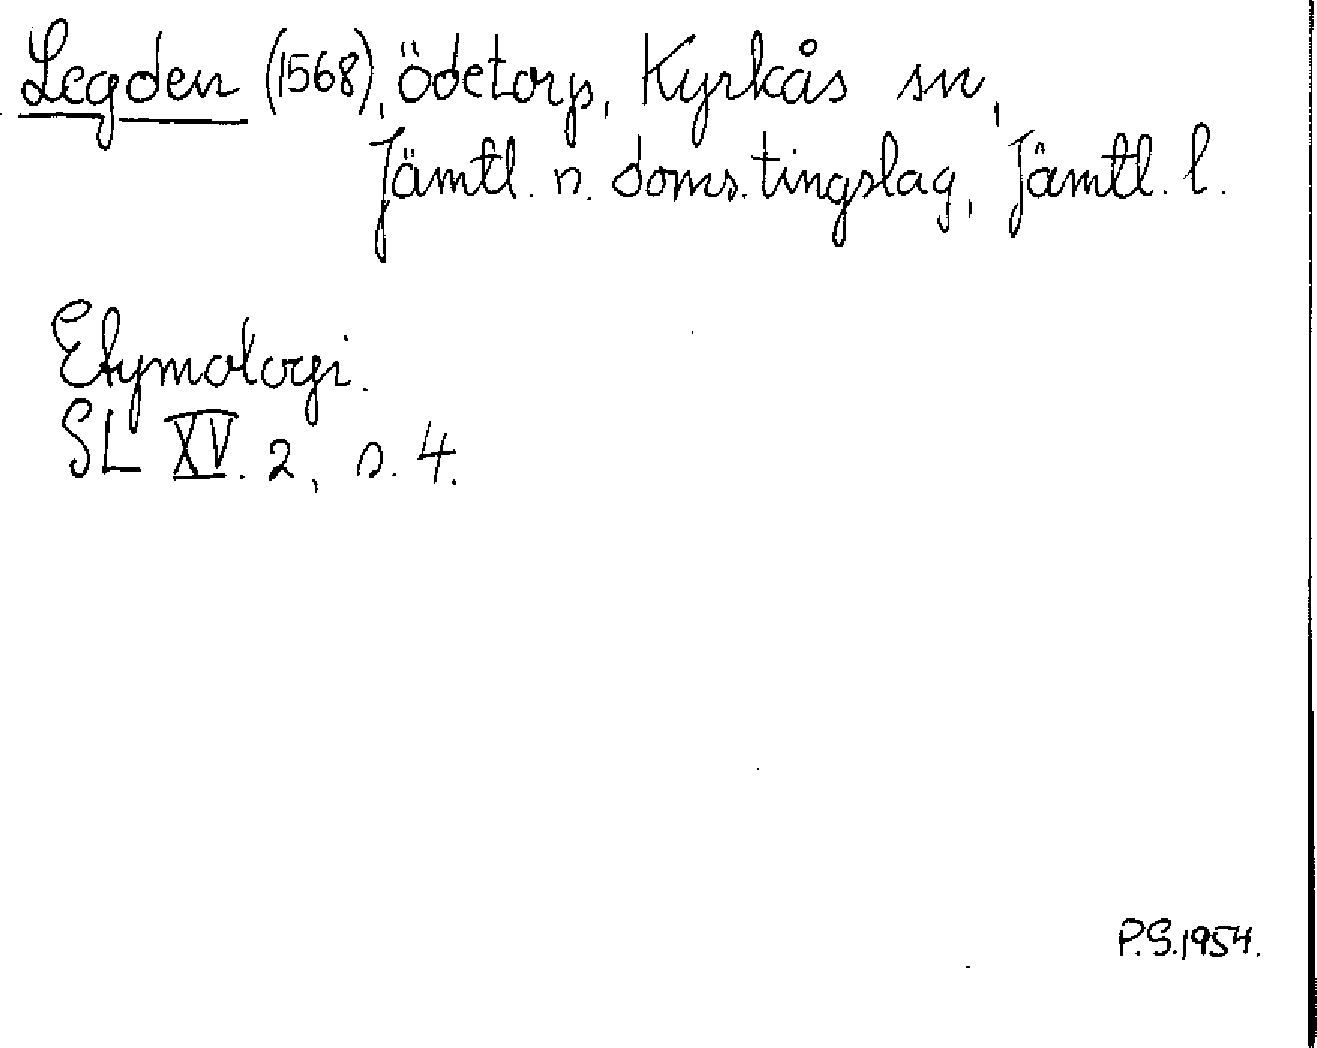 Legden (1568), ödetorp, Kyrkås sn,
Jämtl. n. doms. tingslag, Jämtl. l.
Etymologi.
SL XV. 2, s. 4.
P.S. 1954.